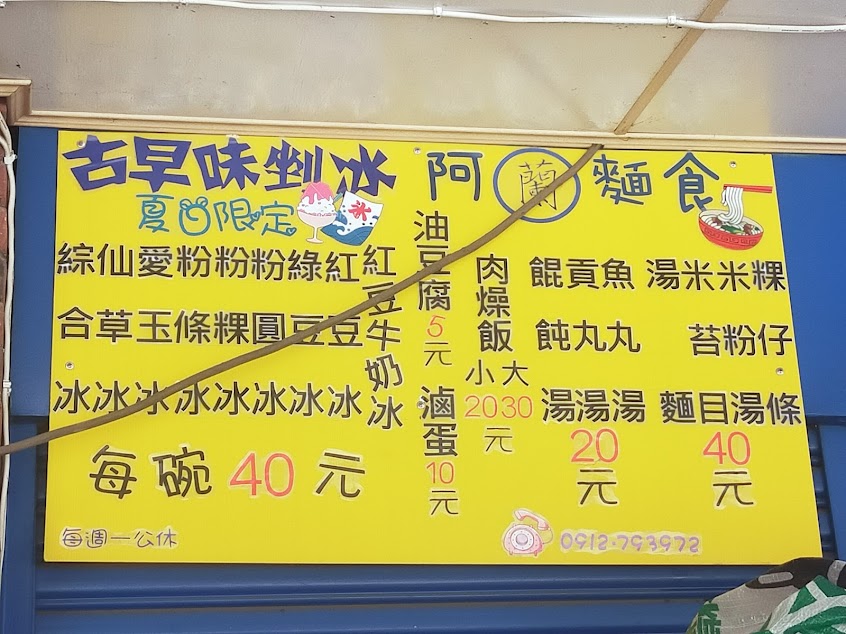 古早味剉冰
夏日限定
冰
紅豆牛奶冰
紅豆冰
綠豆冰
粉圓冰
粉粿冰
粉條冰
愛玉冰
仙草冰
綜合冰
每碗40元
每週一公休
阿蘭麵食
粿仔條
米粉湯
米苔目
湯麵
40元
魚丸湯
貢丸湯
餛飩湯
20元
肉燥飯
小 大
20 30
元
油豆腐5元
滷蛋10元
0912-793972